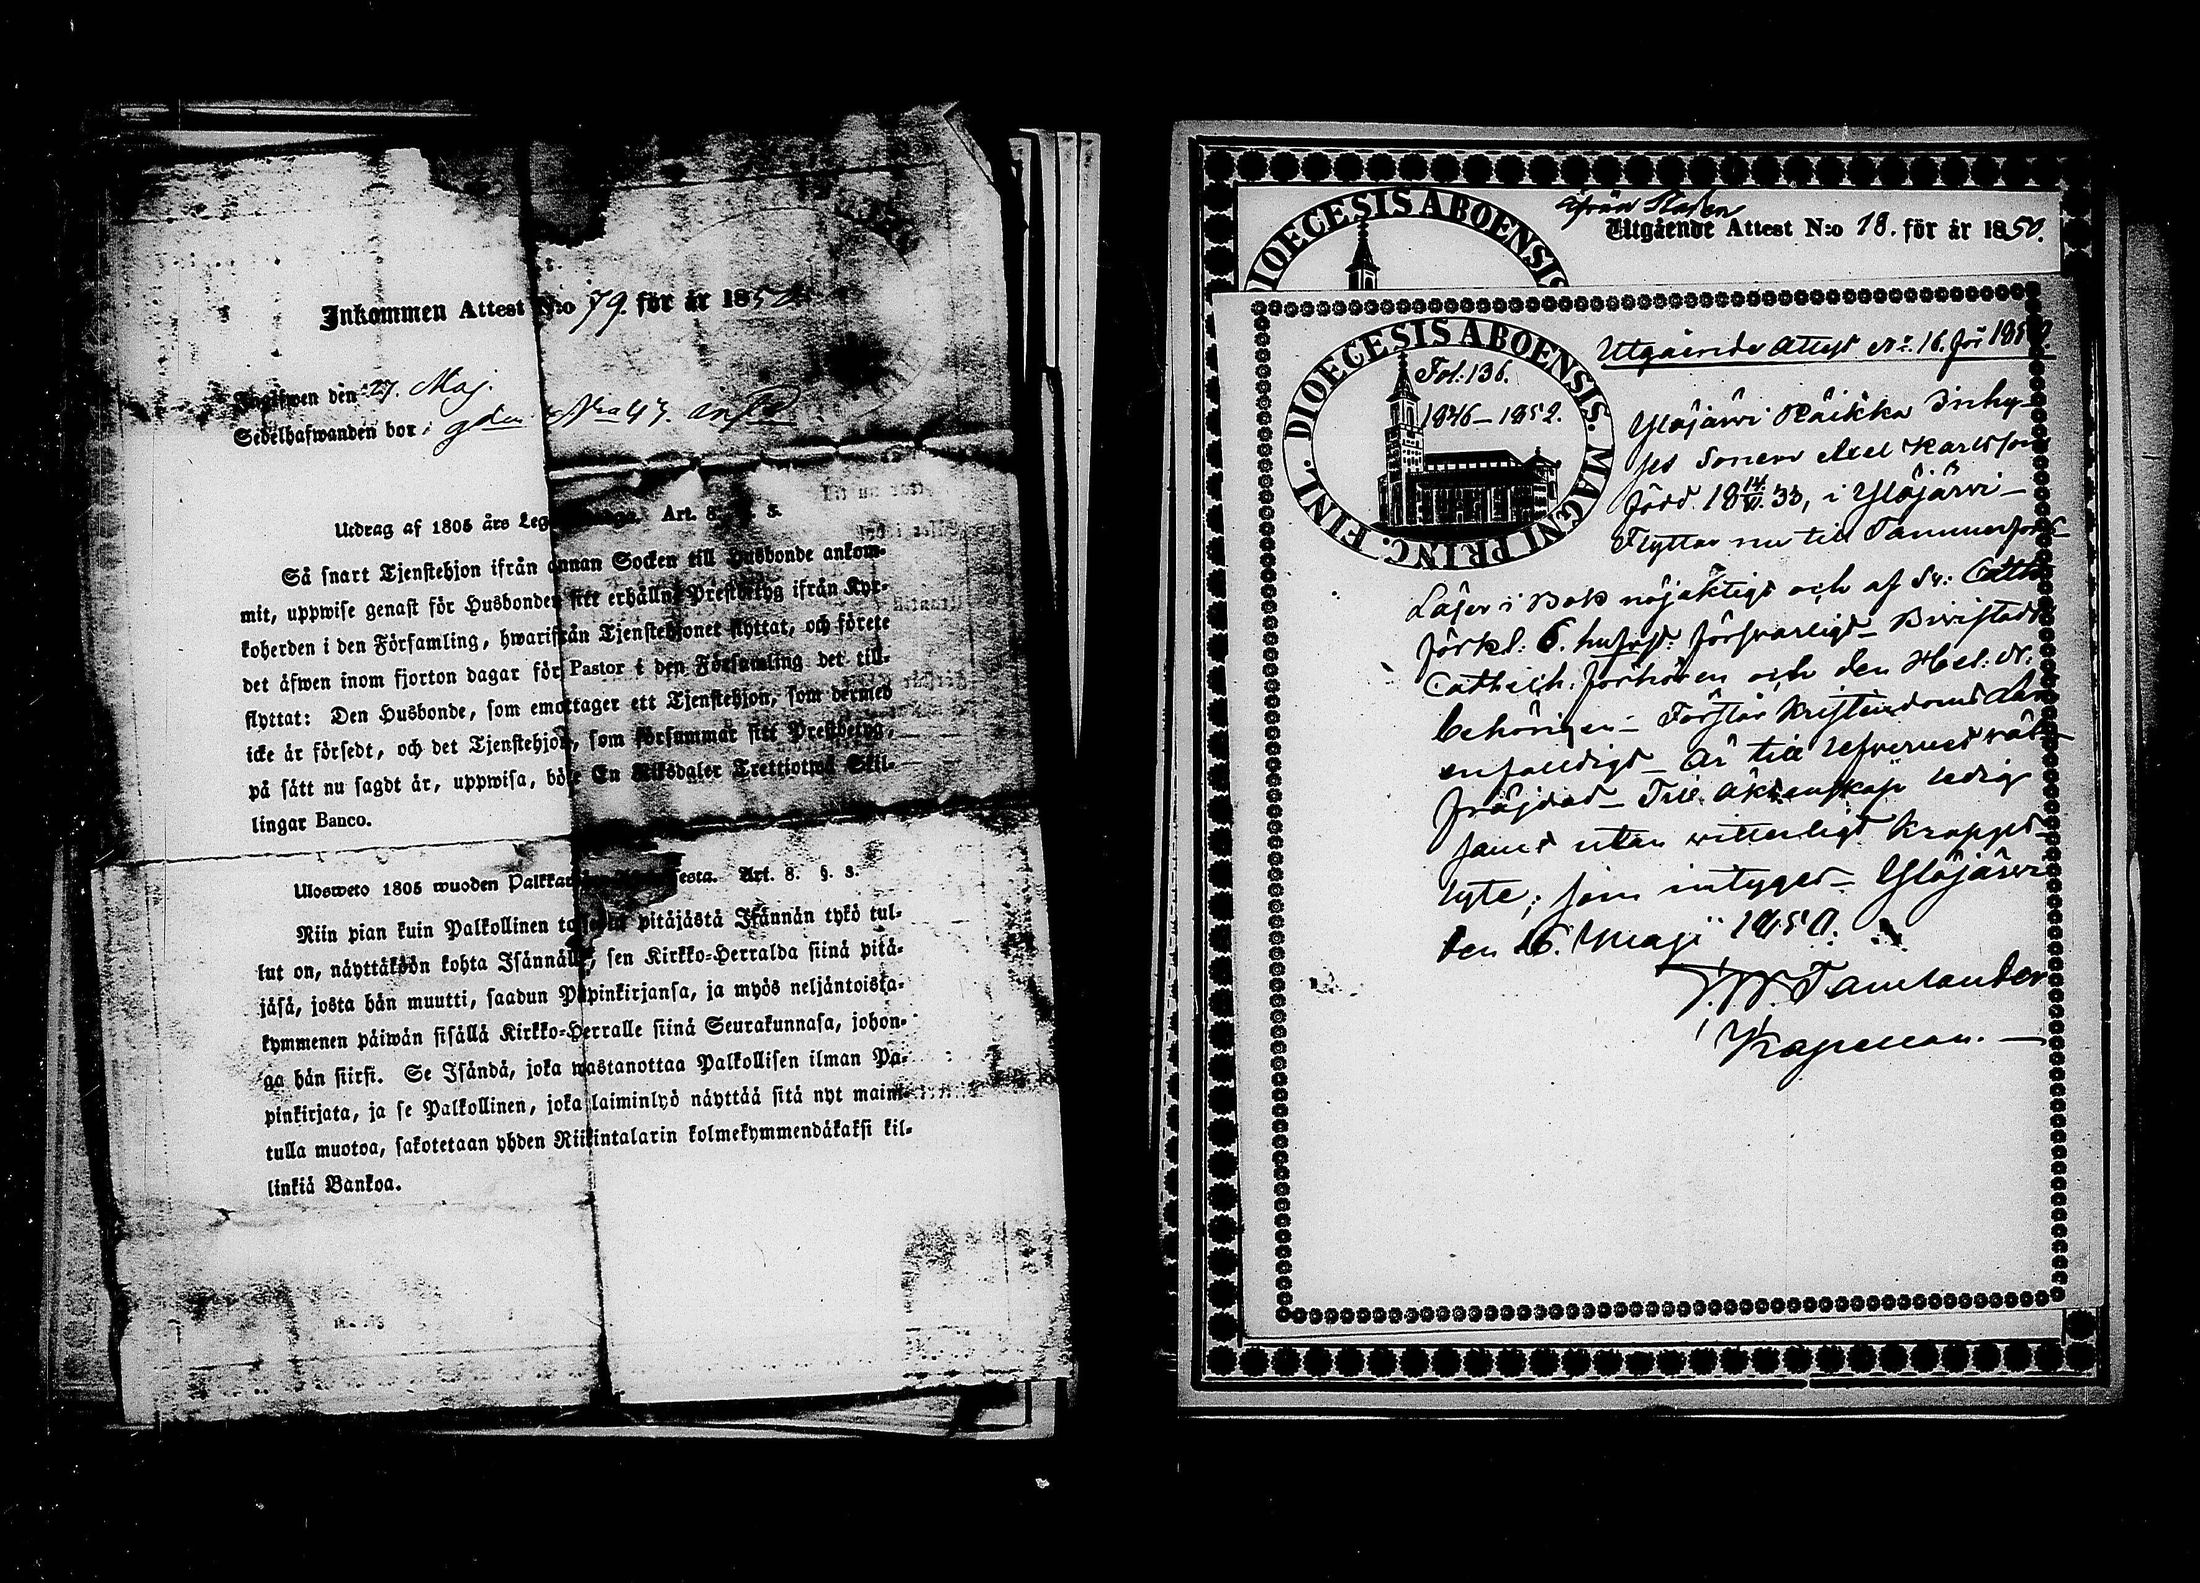 Inkommen Attest N:o 79. för år 185
Ingifwen den 27. Maj.
Sedelhafwanden bor i gden N:o 47.
Utdrag af 1805 års Leg Art. 8. §. 3.
Så snart Tjenstehjon ifrån annan Socken till Husbonde ankom-
mit, uppwise genast för Husbonden sitt erhållne Prestbetyg ifrån Kyr-
koherden i den Församling, hwarifrån Tjenstehjonet flyttat, och förete
det äfwen inom fjorton dagar för Pastor i den Församling det till-
flyttat: Den Husbonde, som emottager ett Tjenstehjon, som dermed
icke är försedt, och det Tjenstehjon, som försummar sitt Prestbetyg,
på sätt nu sagdt är, uppwisa, böte En Riksdaler Trettiotwå Skil-
lingar Banco.
Ulosweto 1805 wuoden Palkka esta. Art. 8. §. 3.
Niin pian kuin Palkollinen toisesta pitäjästä Isännän tykö tul-
lut on, näyttäköön kohta Isännälle, sen Kirkko-Herralda siinä pitä-
jäsä, josta hän muutti, saadun Papinkirjansa, ja myös neljäntoista-
kymmenen päiwän sisällä Kirkko-Herralle siinä Seurakunnasa, johon-
ga hän siirsi. Se Isändä, joka wastanottaa Palkollisen ilman Pa-
pinkirjata, ja se Palkollinen, joka laiminlyö näyttää sitä nyt maini-
tulla muotoa, sakotetaan yhden Riikintalarin kolmekymmendäkaksi kil-
linkiä Bankoa.
ifrån Staden
Utgående Attest N:o 18. för år 1850.
DIOECESIS ABOENSIS
Utgående Attest N:o 16. för 1850
DIOECESIS ABOENSIS. MAGNI PRINC. FINL.
Fol: 136.
1846–1852.
Ylöjärvi Räikkä Inhy-
ses Sonen Axel Karlsson
född 18 14/VI 33, i Ylöjärvi –
Flyttar nu till Tammerfors –
Läser i Bok nöjaktigt och af D:r Luth:
förkl: 6. hufvst: försvarligt – Bivistadt
Cathech. förhören och den Hel: N:
behörigen – Förstår Kristendoms
enfaldigt – Är till Lefvernet väl-
fräjdad – Till Äktenskap ledig
samt utan vitterligt kropps-
lyte; som intygas – Ylöjärvi
den 16. Maji 1850.
Tamlander
Kapellan. –